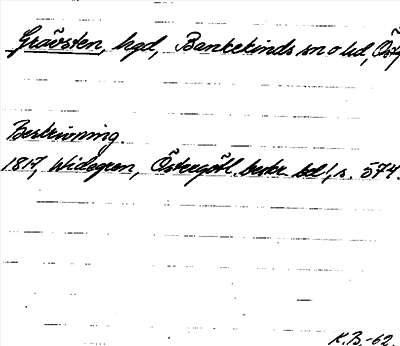 Gråvsten, hgd, Bankekinds sn o hd, Östg
Beskrivning.
1817, Widegren, Östergötl. beskr. bd 1, s. 574.
K.B.-62.